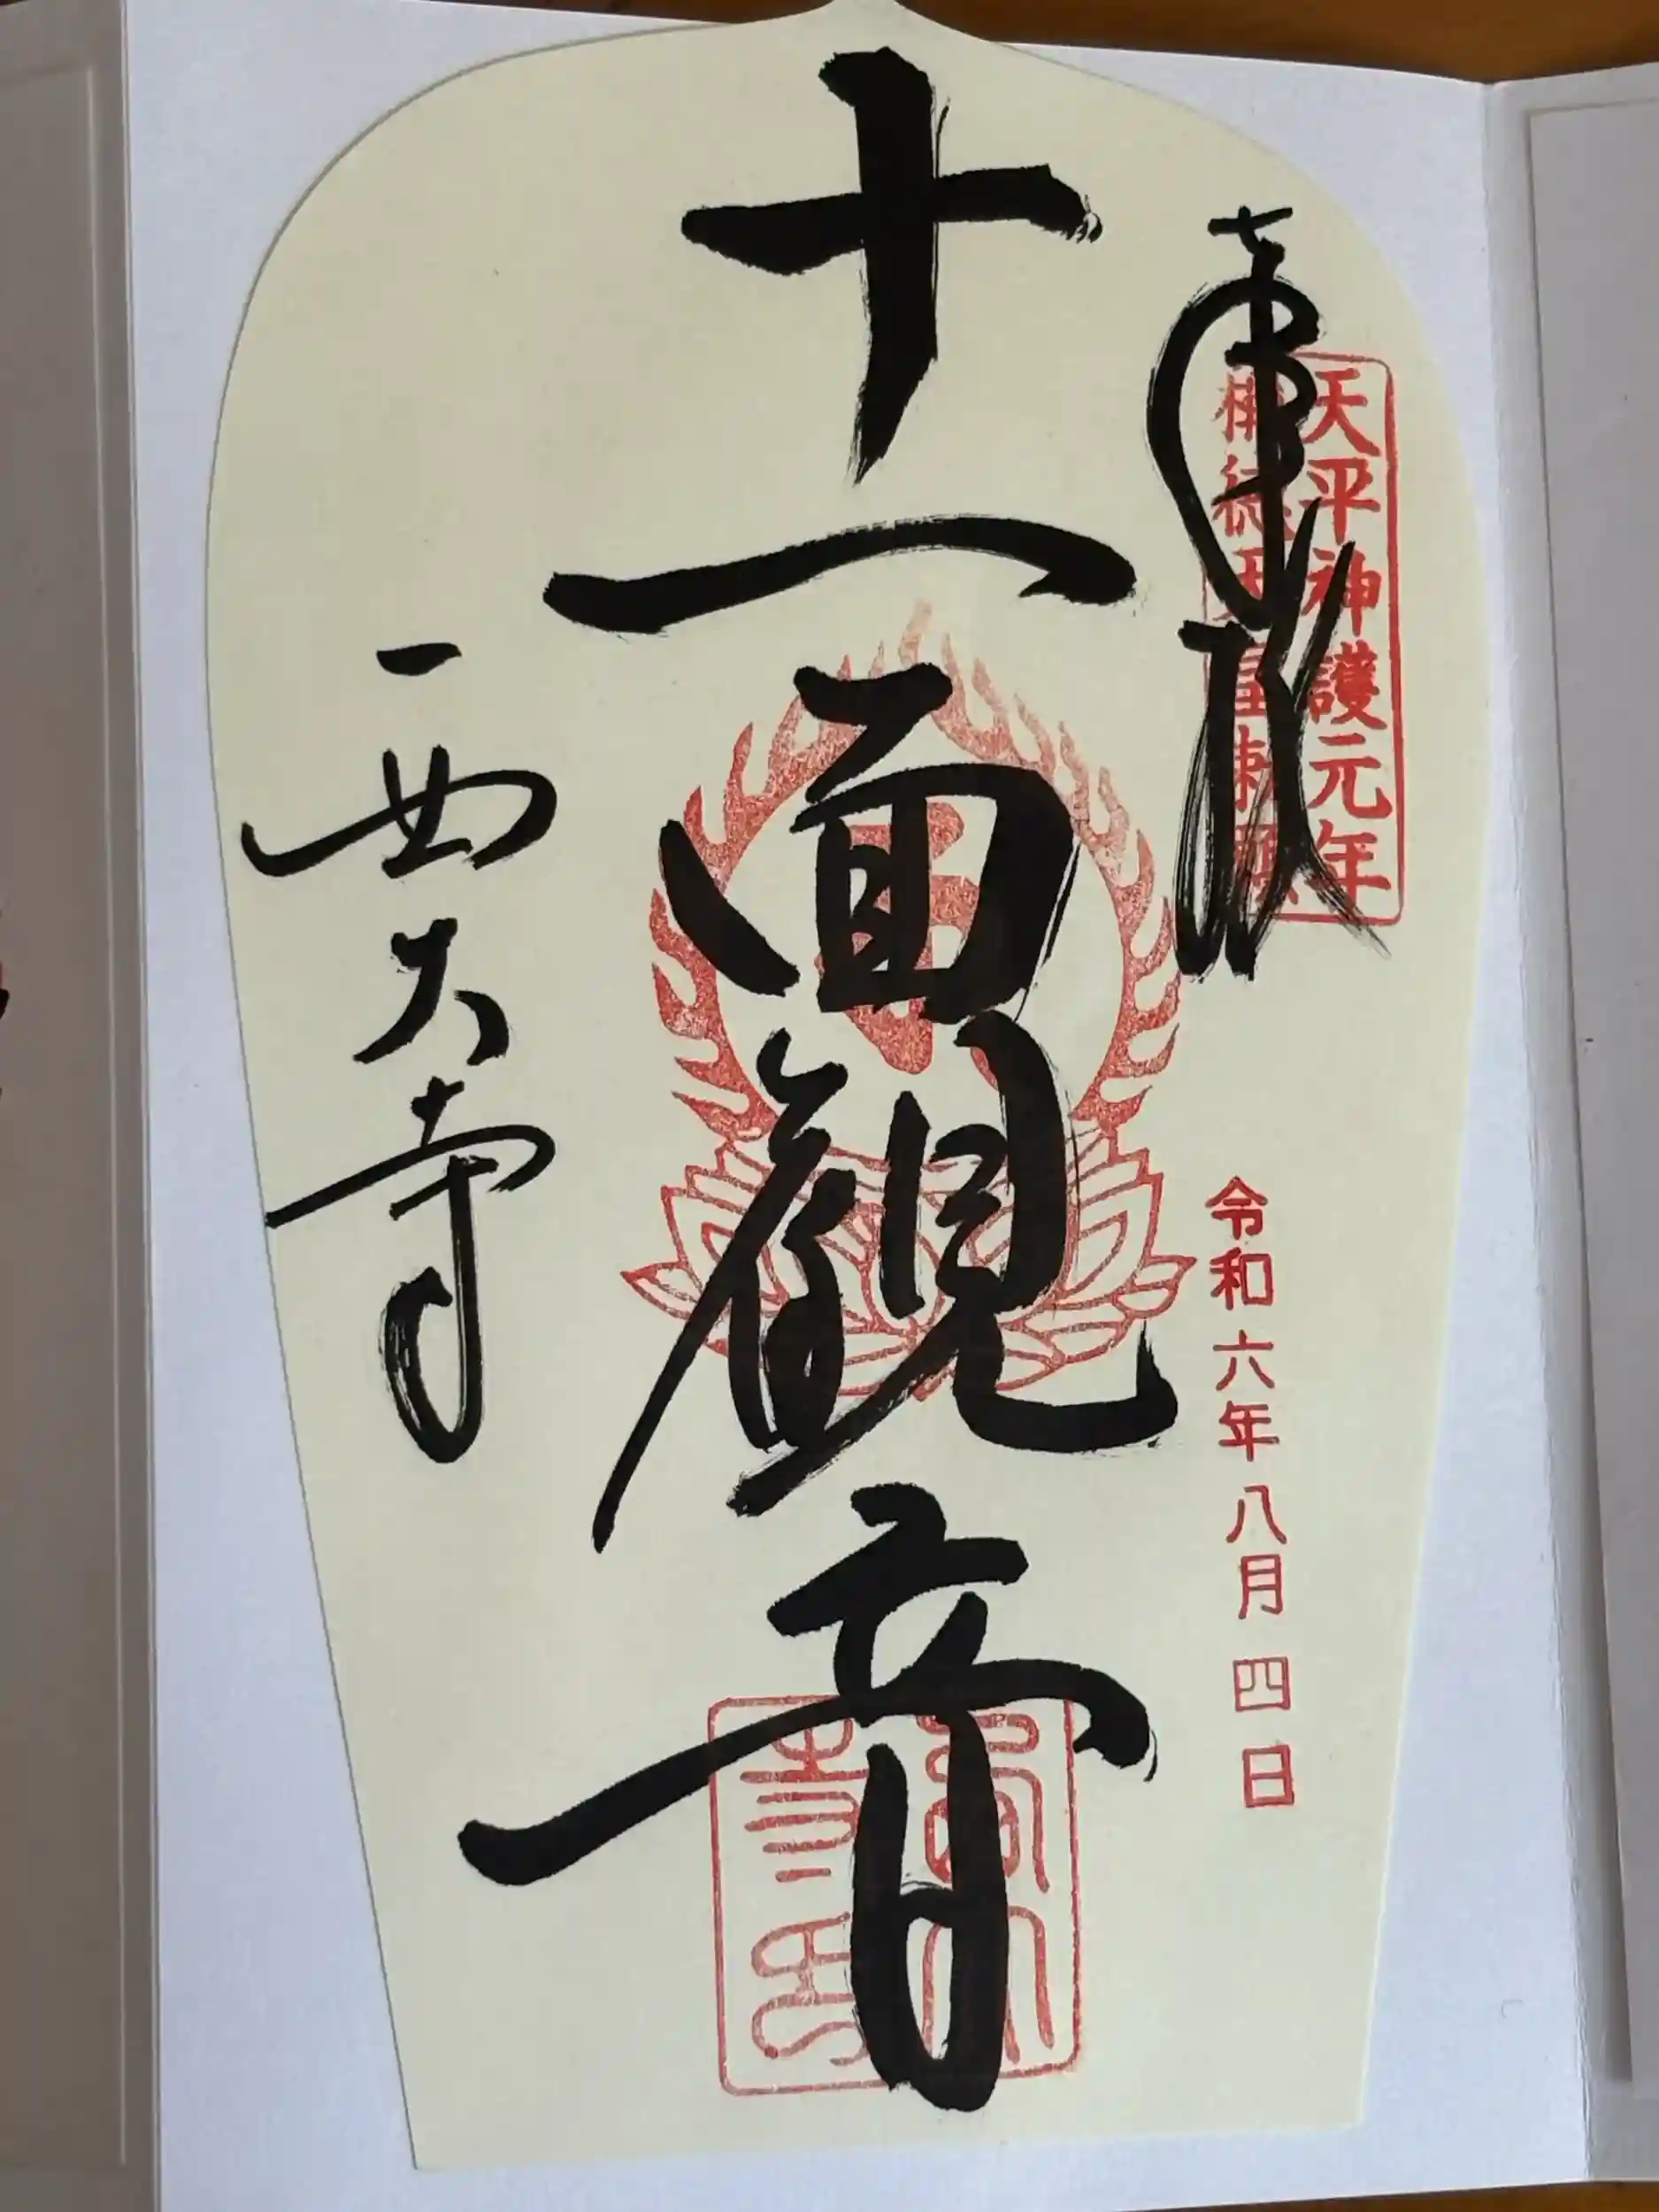 奉拝
天平神護元年
称徳天皇勅願
令和六年八月四日
十一面観音
西大寺